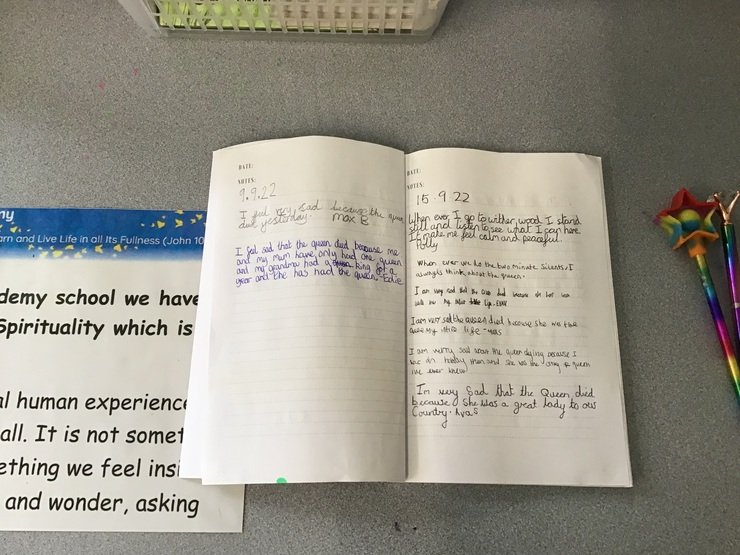 ny
arn and Live Life in all Its Fullness (John 10
demy school we have
Spirituality which is
al human experience
all. It is not somet
ething we feel insi
and wonder, asking
DATE:
NOTES:
9.9.22
I feel very sad because the queen
died yesterday. Max B
I feel sad that the queen died because me
and my mum have only had one queen
and my grandma had a king for a
year and she has had the queen. Edie
DATE:
NOTES:
15.9.22
When ever I go to wither wood I stand
still and listen to see what I can here.
It make me feel calm and peaceful.
Polly
When ever we do the two minute silents I
always think about the queen.
I am very sad that the died because she has been
with me my life. Evan
I am very sad the queen died because she was the
queen my life
I am very sad about the queen dying because I
was on holiday then and she was the only queen
ive ever known
I'm very Sad that the Queen died
because She was a great lady to our
Country. Ava S